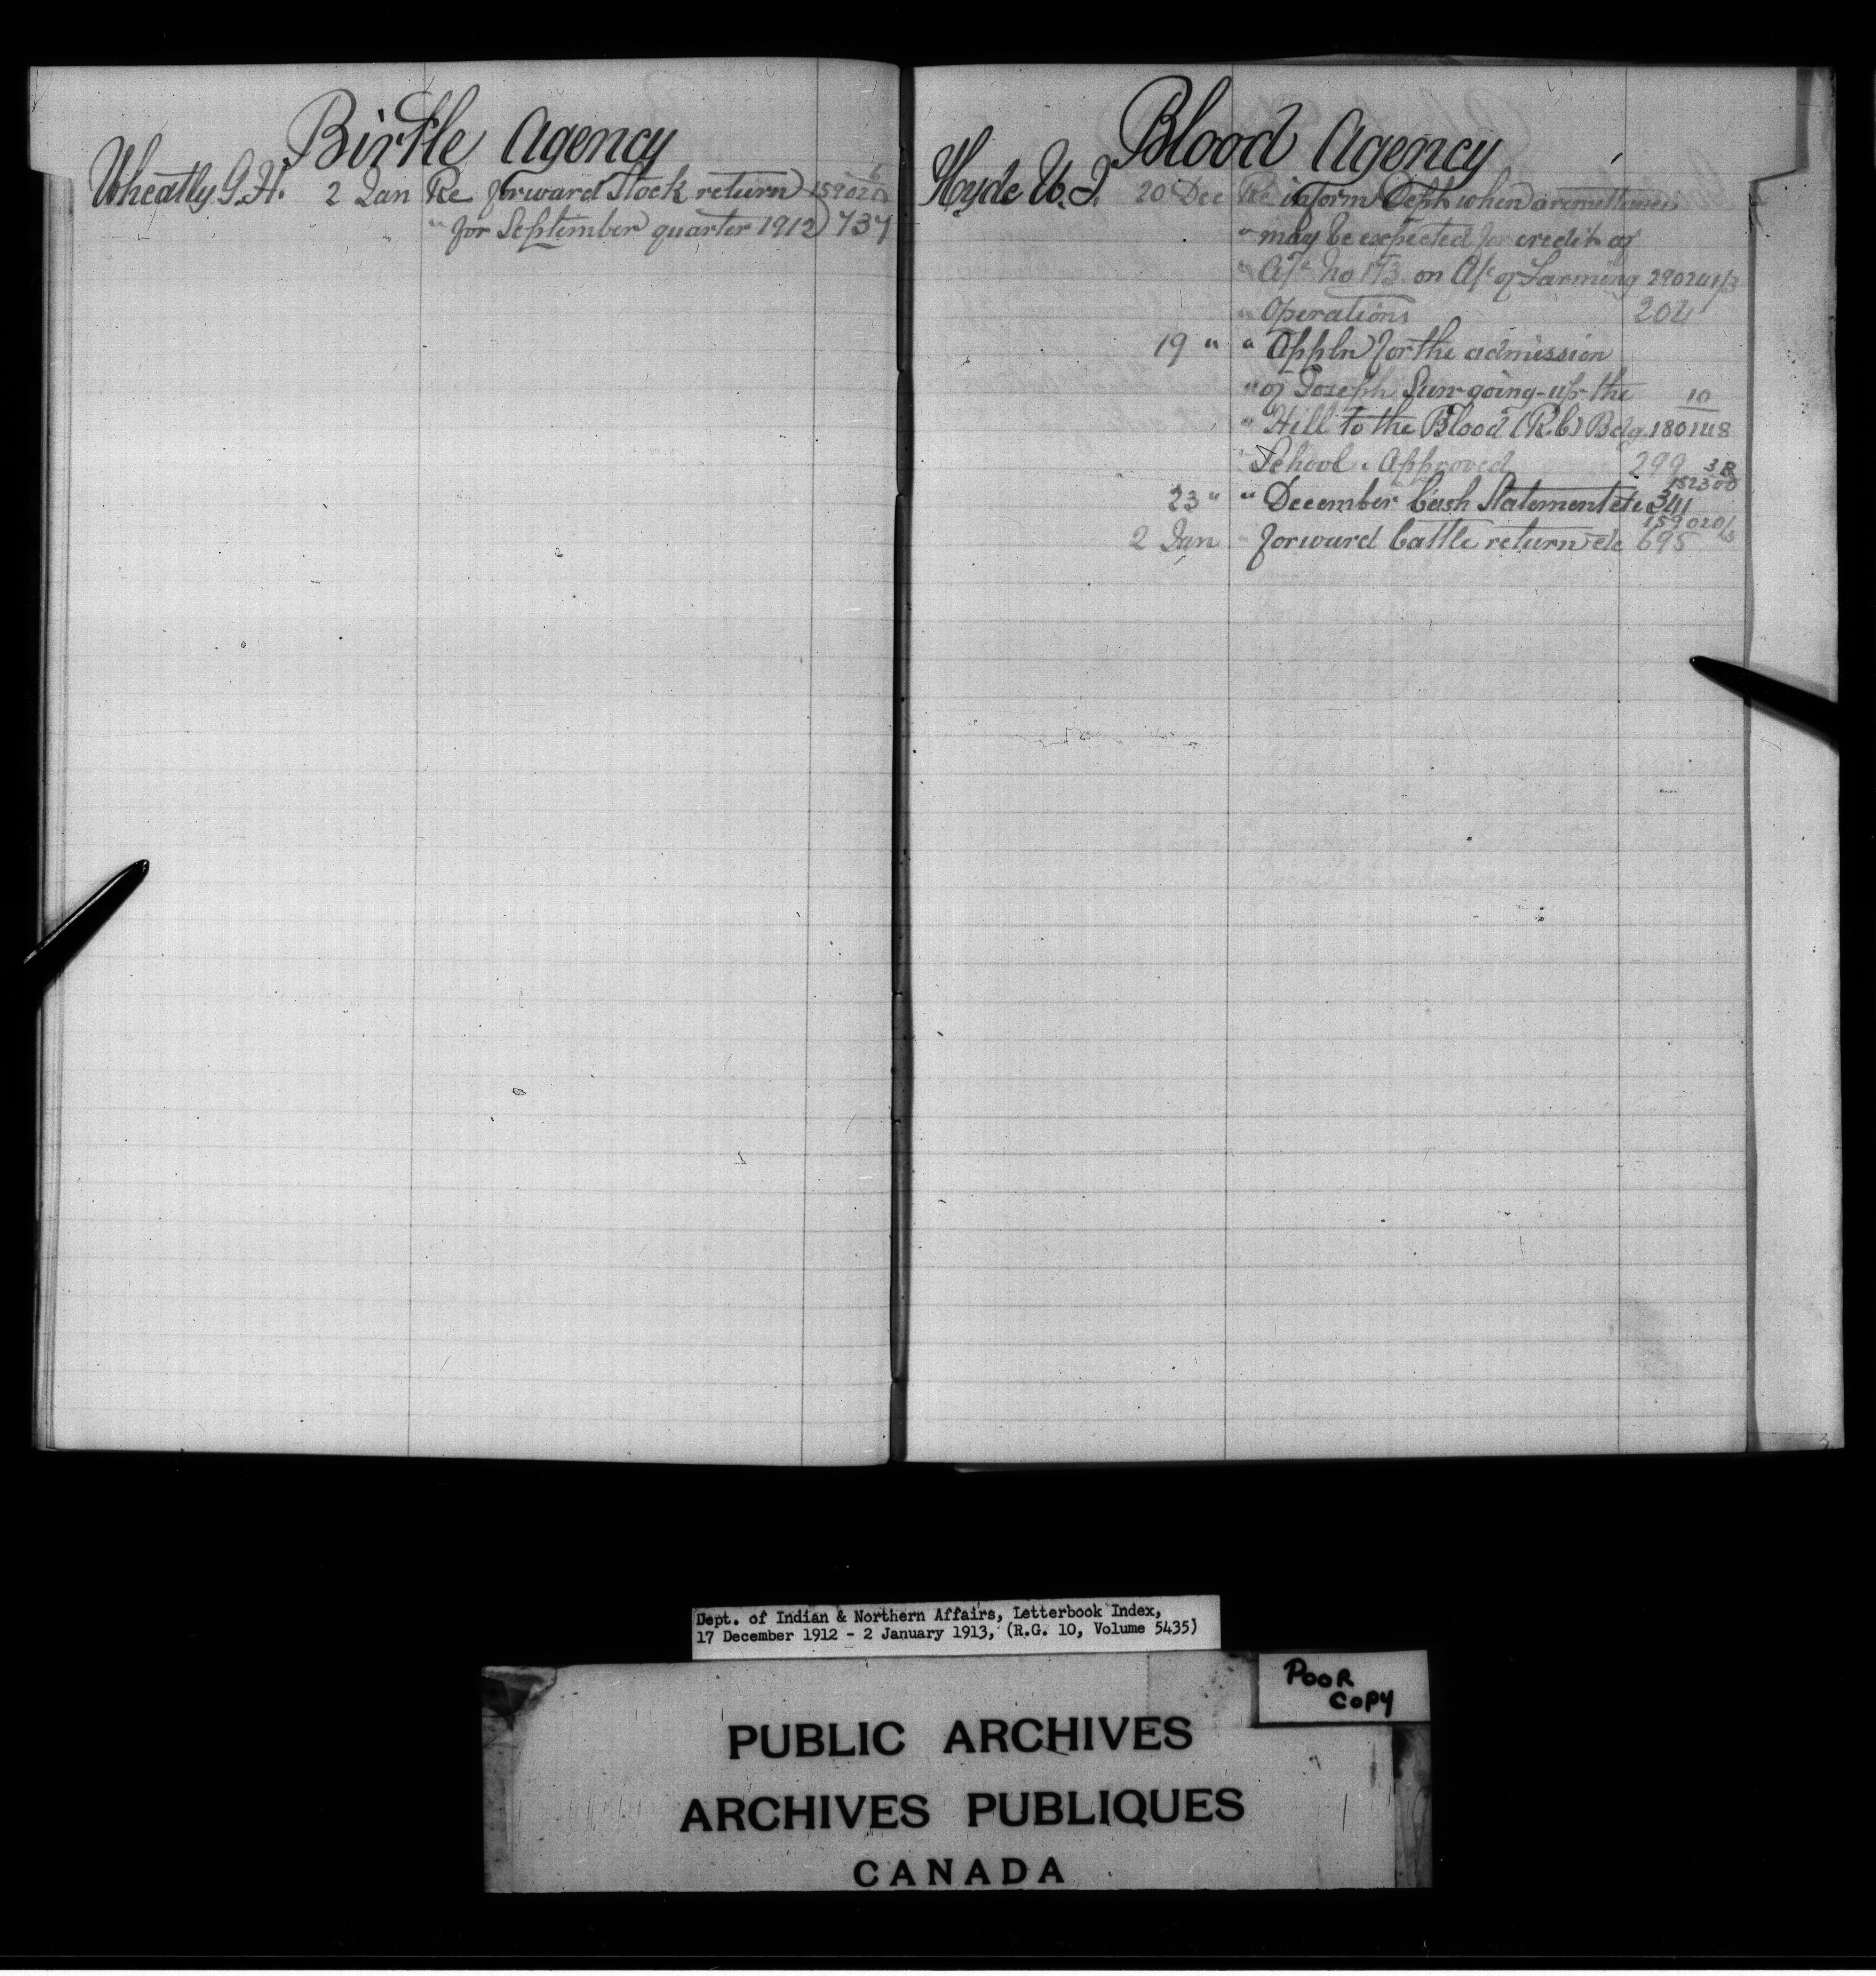 Birtle Agency
Wheatly G. H. 2 Jan Re forward Stock return 159020
6
" for September quarter 1912) 737
Blood Agency
Hyde W. J. 20 Dec Re inform Dept when a remittance
" may be expected for credit of
" A/c No 173 on A/c of Farming 290241/3
" Operations 204
19 " " Appln for the admission
" of Joseph Sun-going-up-the 10
" Hill to the Blood (R.C) Bdg. 180148
" School. Approved 299
3R
152300
23 " " December Cash Statement etc 341
159020/3
2 Jan " forward Cattle return etc 695
Dept. of Indian & Northern Affairs, Letterbook Index,
17 December 1912 - 2 January 1913, (R.G. 10, Volume 5435)
POOR
COPY
PUBLIC ARCHIVES
ARCHIVES PUBLIQUES
CANADA